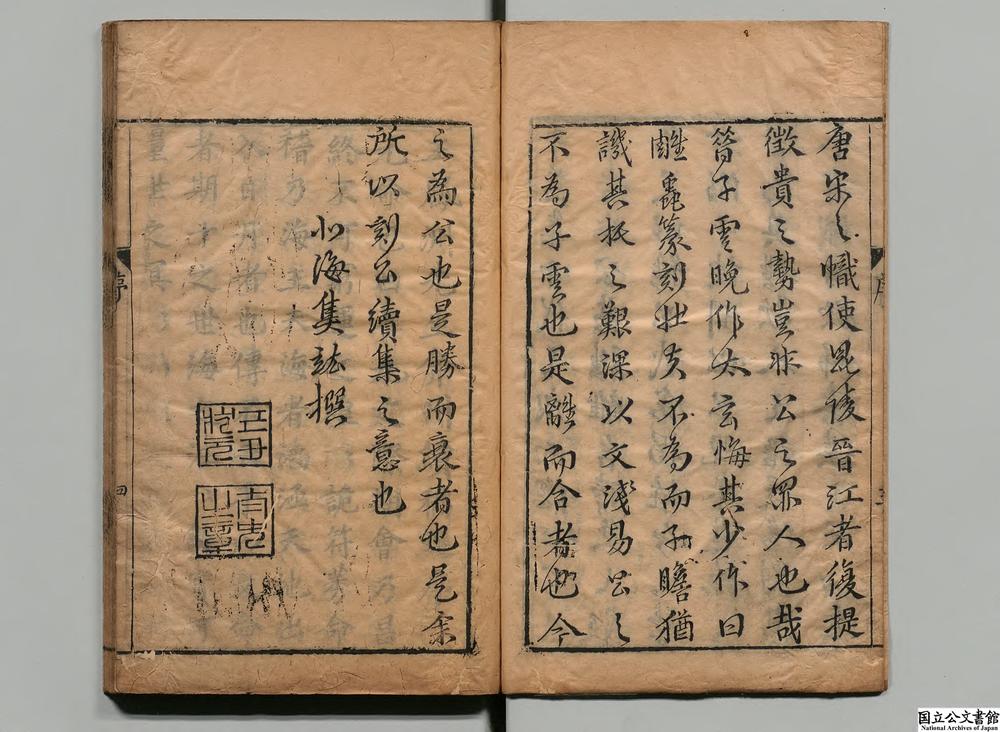 唐宋之幟使毘陵晉江者復提
徵貴之勢豈非公之罪人也哉
昔子雲晚作太玄悔其少作曰
雕蟲篆刻壯夫不為而子瞻猶
譏其抚之艱深以文淺易公之
不為子雲也是離而合者也今
序
之為公也是勝而衰者也是余
所以刻公續集之意也
北海集誌撰
序
四
丁丑狀元
國立公文書館
National Archives of Japan